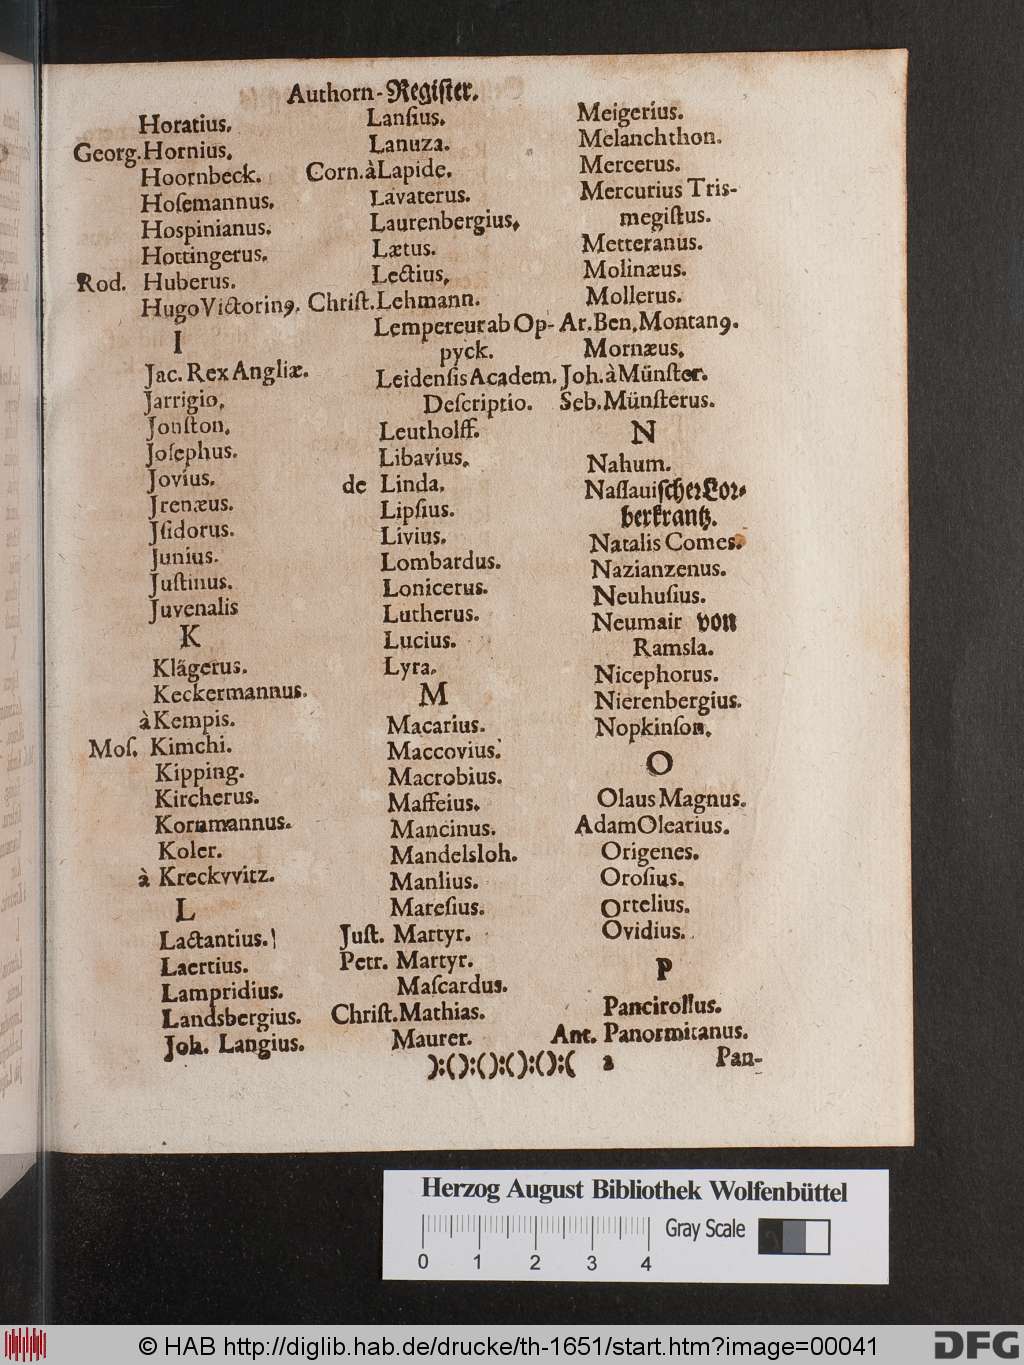 Authorn-Regiſter.
Horatius.
Georg. Hornius.
Hoornbeck.
Hoſemannus.
Hospinianus.
Hottingerus.
Rod. Huberus.
Hugo Victorinꝰ.
I
Jac. Rex Angliæ.
Jarrigio.
Jonſton.
Joſephus.
Jovius.
Jrenæus.
Jſidorus.
Junius.
Juſtinus.
Juvenalis
K
Klågerus.
Keckermannus.
à Kempis.
Moſ. Kimchi.
Kipping.
Kircherus.
Kornmannus.
Koler.
à Kreckvvitz.
L
Lactantius.
Laertius.
Lampridius.
Landsbergius.
Joh. Langius.
Lanſius.
Lanuza.
Corn. à Lapide.
Lavaterus.
Laurenbergius.
Lætus.
Lectius.
Chriſt. Lehmann.
Lempereur ab Op-
pyck.
Leidenſis Academ.
Deſcriptio.
Leutholff.
Libavius.
de Linda.
Lipſius.
Livius.
Lombardus.
Lonicerus.
Lutherus.
Lucius.
Lyra.
M
Macarius.
Maccovius.
Macrobius.
Maffeius.
Mancinus.
Mandelsloh.
Manlius.
Mareſius.
Juſt. Martyr.
Petr. Martyr.
Maſcardus.
Chriſt. Mathias.
Maurer.
Meigerius.
Melanchthon.
Mercerus.
Mercurius Tris-
megiſtus.
Metteranus.
Molinæus.
Mollerus.
Ar. Ben. Montanꝰ.
Mornæus.
Joh. à Münſter.
Seb. Münſterus.
N
Nahum.
Naſſauiſcher Lor-
berkrantz.
Natalis Comes.
Nazianzenus.
Neuhuſius.
Neumair von
Ramsla.
Nicephorus.
Nierenbergius.
Nopkinſon.
O
Olaus Magnus.
Adam Olearius.
Origenes.
Oroſius.
Ortelius.
Ovidius.
P
Pancirollus.
Ant. Panormitanus.
):():():():():( 2 Pan-
Herzog August Bibliothek Wolfenbüttel
Gray Scale
0 1 2 3 4
© HAB http://diglib.hab.de/drucke/th-1651/start.htm?image=00041
DFG